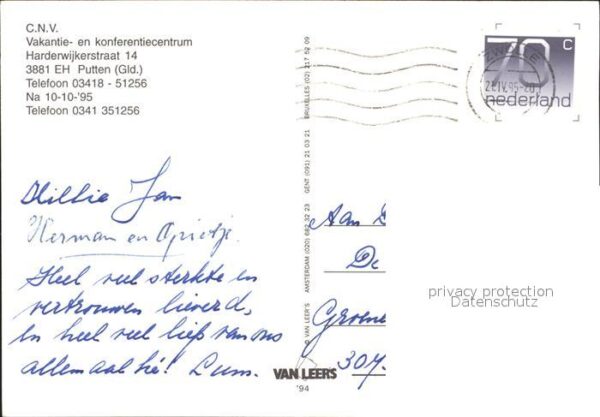 C.N.V.
Vakantie- en konferentiecentrum
Harderwijkerstraat 14
3881 EH Putten (Gld.)
Telefoon 03418 - 51256
Na 10-10-'95
Telefoon 0341 351256
70 c
nederland
ZWOLLE
Jan
Herman en
Heel veel sterkte en
vertrouwen lieverd,
en heel veel liefs van ons
allemaal hé!
© VAN LEER'S AMSTERDAM (020) 682 52 23 GENT (091) 21 03 21 BRUXELLES (02) 217 52 09
VAN LEER'S
'94
Aan
De
Groene
307
privacy protection
Datenschutz